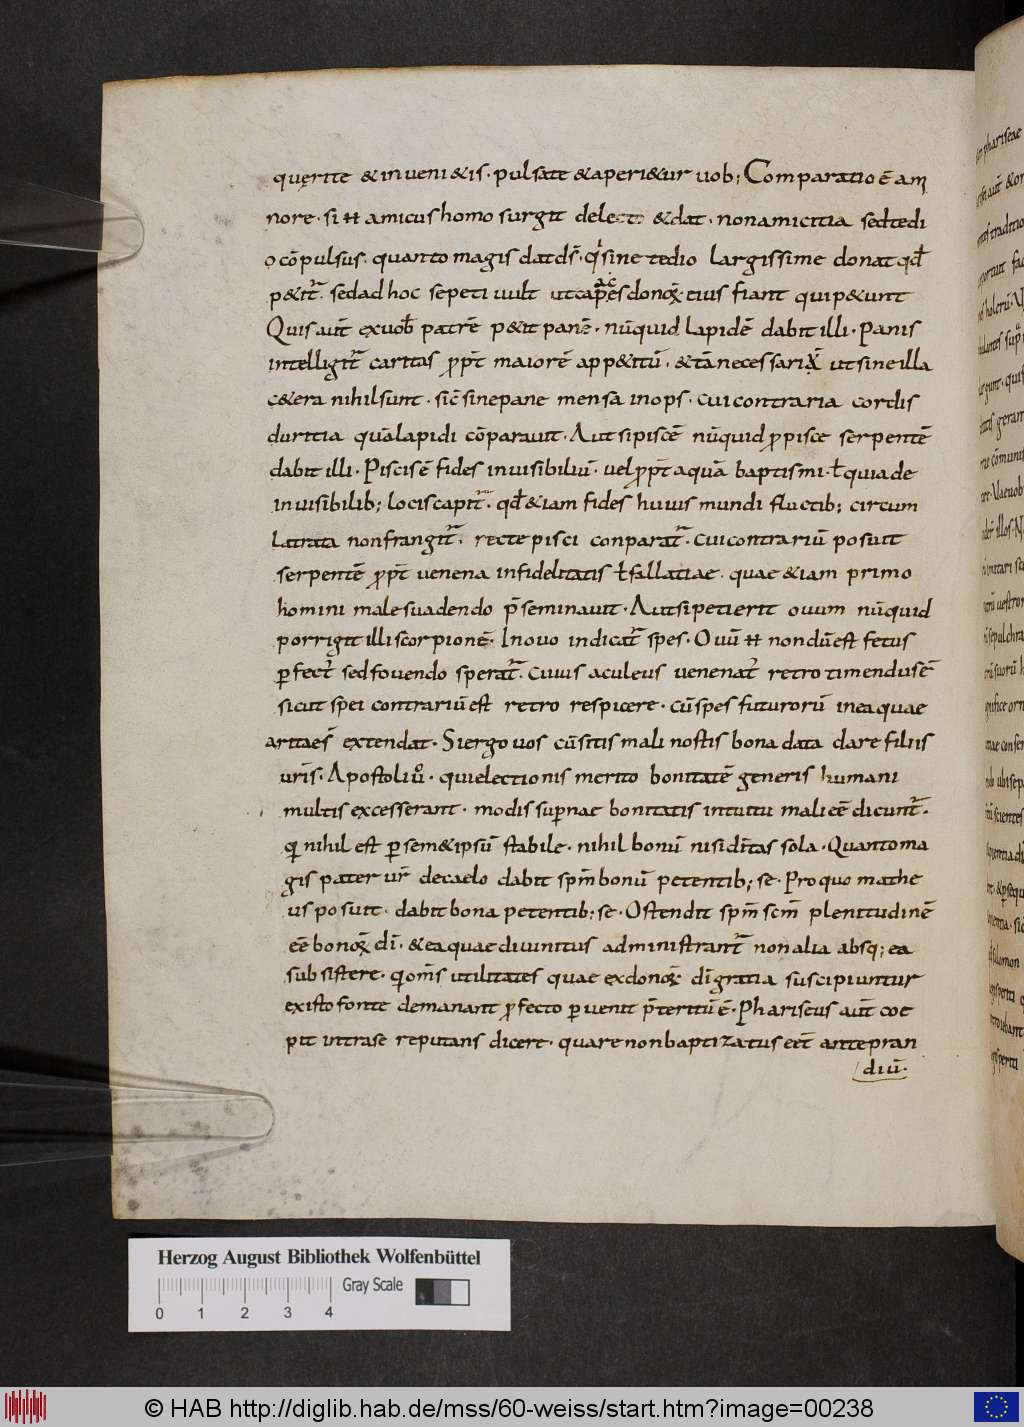 quęrite & inveni&is · pulsate & aperi&ur vob; Comparatio ē a m
nore · si ħ amicus homo surgit de lecto & dat · non amicitia sed tedi
o cōpulsus · quanto magis dat ds̄ · qi sine tedio largissime donat qđ
p&it᷑ · sed ad hoc se peti vult ut capaces donoꝝ eius fiant qui p&unt
Quis aut̄ ex vob̄ patrē p&it panē · nūquid lapidē dabit illi · Panis
intelligit᷑ caritas ꝓpt̄ maiorē app&itū · & tā necessariū ut sine illa
c&era nihil sunt · sic̄ sine pane mensa inops · cui contraria cordis
duritia quā lapidi cōparavit · Aut si piscē nūquid ꝓ pisce serpentē
dabit illi · Piscis ē fides invisibiliū · vel ꝓpt̄ aquā baptismi · ł quia de
invisibilib; locis capit᷑ · qđ &iam fides huius mundi fluctib; circum
latrata non frangit᷑ · recte pisci conparat᷑ · cui contrariū posuit
serpentē ꝓpt̄ venena infidelitatis ł fallatiae · quae &iam primo
homini male suadendo p̄seminavit · Aut si petierit ovum nūquid
porrigit illi scorpionē · In ovo indicat᷑ spes · Ovū ħ nondū est fetus
ꝑfect᷒ sed fovendo sperat᷑ · cuius aculeus venenat᷒ retro timendus ē
sicut spei contrariū est retro respicere · cū spes futurorū in ea quae
a ritaes̄ extendat · Si ergo vos cū sitis mali nostis bona data dare filiis
vris̄ · Apostoli v̊ · qui electionis merito bonitatē generis humani
multis excesserant · modis supernae bonitatis intuitu mali eē dicunt᷑ ·
qi nihil est ꝑ sem&ipsū stabile · nihil bonū nisi dīt̄as sola · Quanto ma
gis pater vr̄ de caelo dabit spm̄ bonū petentib; se · Pro quo mathe
us posuit · dabit bona petentib; se · Ostendit spm̄ scm̄ plenitudinē
eē bonoꝝ dī · & ea quae divinitus administrant᷑ non alia absq; ea
subsistere · qi oms̄ utilitates quae ex donoꝝ dī gratia suscipiuntur
ex isto fonte demanant ꝓfecto ꝑvenit p̄teritū ē · Phariseus aut̄ coe
pit intra se reputans dicere · quare non baptizatus eēt ante pran
diū ·
Herzog August Bibliothek Wolfenbüttel
Gray Scale
0 1 2 3 4
© HAB http://diglib.hab.de/mss/60-weiss/start.htm?image=00238